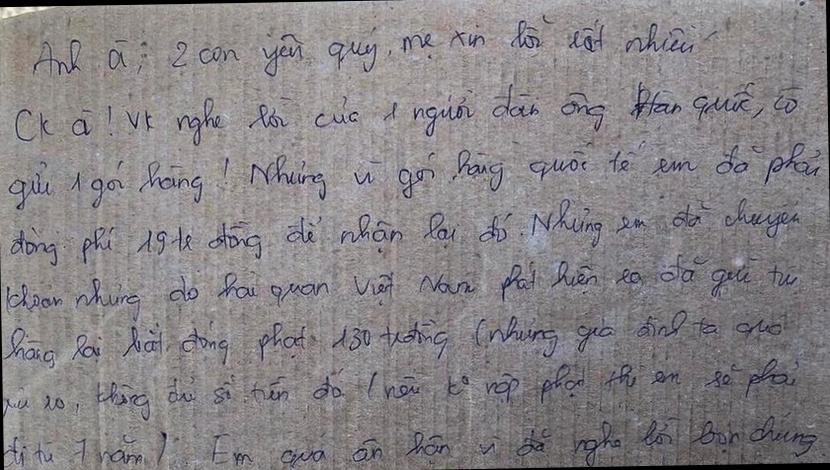 Anh à, 2 con yêu quý, mẹ xin lỗi rất nhiều
Ck à! Vk nghe lời của 1 người đàn ông Hàn quốc, có
gửi 1 gói hàng! Nhưng vì gói hàng quốc tế em đã phải
đóng phí 19tr đồng để nhận lại đó. Nhưng em đã chuyển
khoản nhưng do hai quan Việt Nam phát hiện ra đã gửi
hàng lại bắt đóng phạt 130 trđồng (nhưng gia đình ta quá
rủi ro, không đủ số tiền đó (nếu ko nộp phạt thì em sẽ phải
đi tù 7 năm). Em quá ân hận vì đã nghe lời bọn chúng